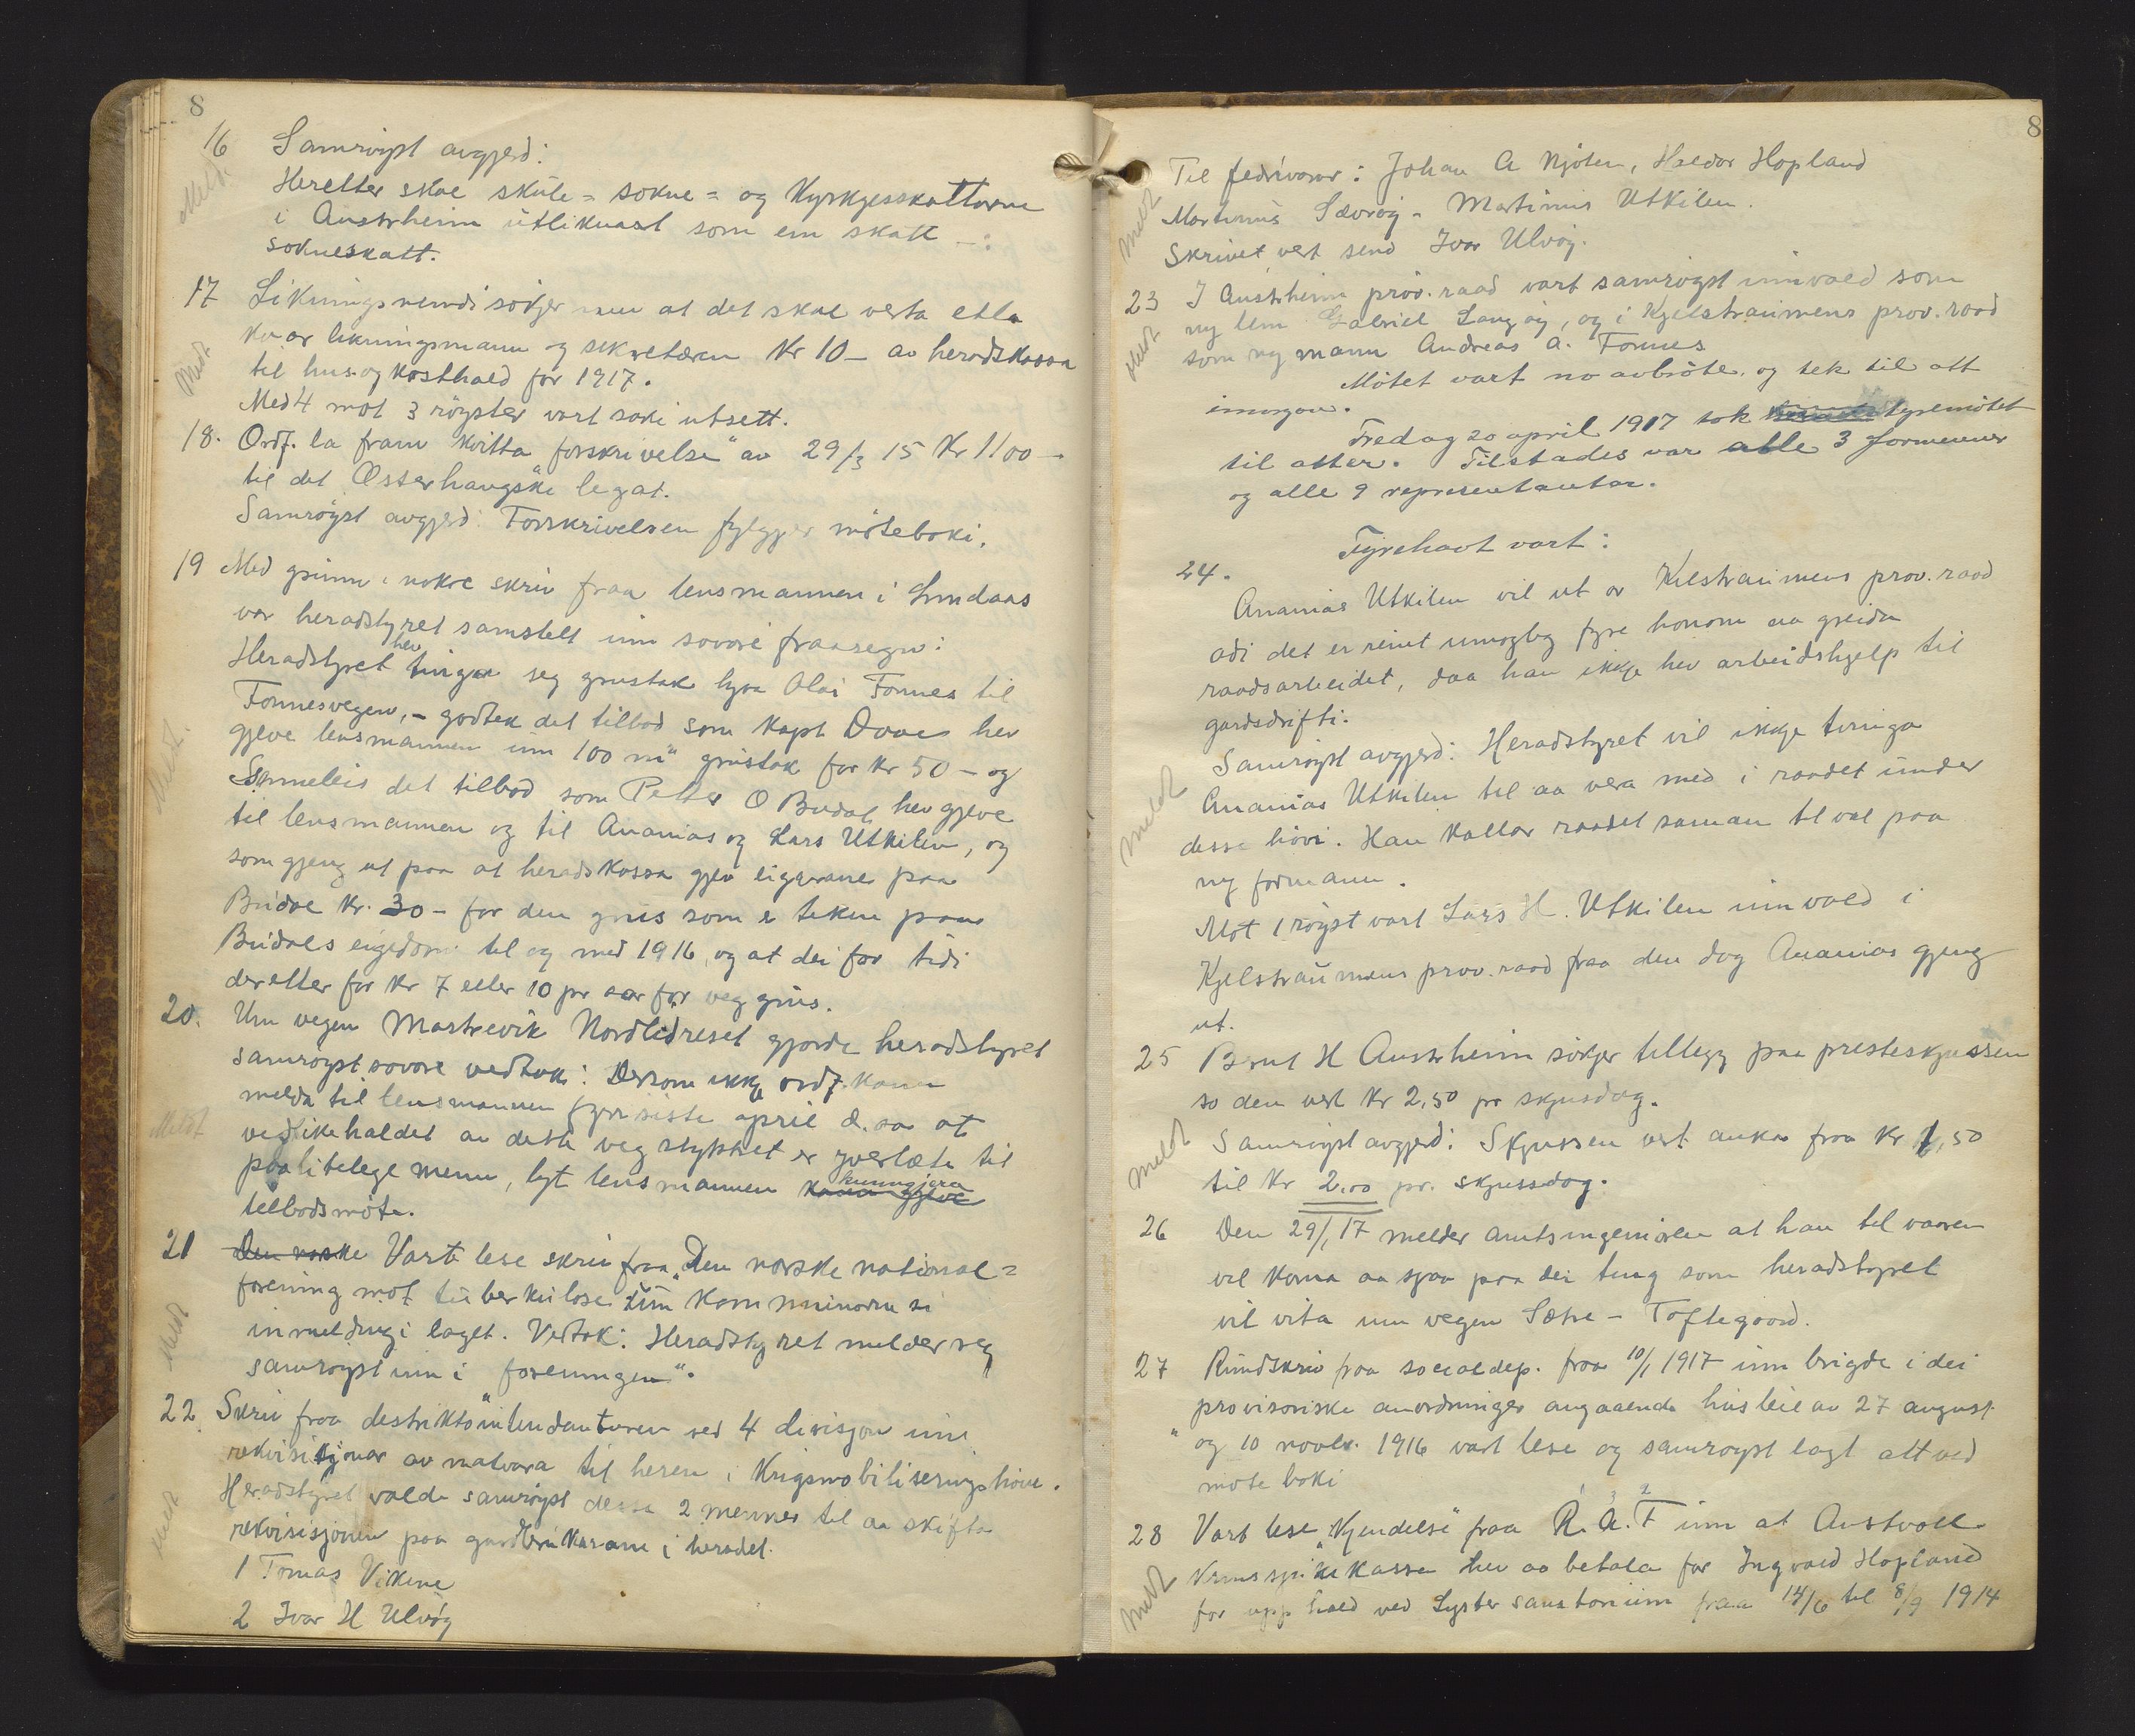 8
16 Samrøyst avgjerd:
Meldt
Heretter skal skule= sokne= og Kyrkjesskattarne
i Austrheim utliknast som ein skatt –:
sokneskatt.
17 Likningsnemdi søkjer um at det skal verta etla
kvar likningsmann og sekretæren Kr 10 – av heradskassa
Meldt
til hus- og kosthald for 1917.
Med 4 mot 3 røyster vart saki utsett.
18. Ordf. la fram kvitta "forskrivelse" av 29/3 15 Kr 1100 –
til det Østerhaugske legat.
Samrøyst avgjerd: Forskrivelsen fylgjer møteboki.
19 Med grunn i nokre skriv fraa lensmannen i Lindaas
var heradstyret samstelt um sovore fraasegn:
Heradstyret hev tinga seg grustak hjaa Olai Fonnes til
Fonnesvegen, – godtek det tilbod som Kapt Daae hev
gjeve lensmannen um 100 m" grustak for Kr 50 – og
Meldt.
Sameleis det tilbod som Peter O Budal hev gjeve
til lensmannen og til Ananias og Lars Utkilen, og
som gjeng ut paa at heradskassa gjev eigarane paa
Budal Kr. 30 – for den grus som er teken paa
Budals eigedom til og med 1916, og at dei for tidi
deretter får Kr 7 eller 10 pr aar for veggrus.
20. Um vegen Mastrevik Nordlidreset gjorde heradstyret
samrøyst sovore vedtak: Dersom ikkje ordf. kann
melda til lensmannen fyre siste april d. aa at
Meldt
vedlikehaldet av dette vegstykket er yverlæte til
paalitelege menn, lyt lensmannen kunngjera
tilbodsmøte.
21 Den norske Vart lese skriv fraa "Den norske national=
forening mot tuberkulose" um kommunarne si
Meldt
innmelding i laget. Vedtak: Heradstyret melder seg
samrøyst inn i "foreningen".
22. Skriv fraa destriktsintendanturen ved 4 divisjon um
rekvisisjonar av matvara til heren i Krigsmobiliseringshøve.
Heradstyret valde samrøyst desse 2 menner til aa skifta
Meldt
rekvisisjonen paa gardbrukarane i heradet.
1 Tomas Vikene
2 Ivar H Ulvøy
8
Til fedrivarar: Johan A Njøten, Haldor Hopland
Martinus Sævrøy – Martinus Utkilen.
Meldt
Skrivet vert send Ivar Ulvøy.
23 I Austrheim prov. raad vart samrøyst innvald som
ny lem Gabriel Langøy, og i Kjelstraumens prov. raad
Meldt
som ny mann Andreas A. Fonnes
Møtet vart no avbrøte, og tek til att
imorgon.
Fredag 20 april 1917 tok styremøtet
til atter. Tilstades var alle 3 formenner
og alle 9 representantar.
Fyrehavt vart:
24. Ananias Utkilen vil ut or Kilstraumens prov. raad
adi det er reint umogleg fyre honom aa greida
raadsarbeidet, daa han ikkje hev arbeidshjelp til
gardsdrifti.
Samrøyst avgjerd: Heradstyret vil ikkje tvinga
Ananias Utkilen til aa vera med i raadet under
Meldt
desse høvi. Han kallar raadet saman til val paa
ny formann.
Mot 1 røyst vart Lars H. Utkilen innvald i
Kjelstraumens prov. raad fraa den dag Ananias gjeng
ut.
25 Bernt H Austrheim søkjer tillegg paa presteskyssen
so den vert Kr 2,50 pr skyssdag.
Meldt
Samrøyst avgjerd: Skyssen vert auka fraa Kr 1,50
til Kr 2.00 pr. skyssdag.
26 Den 29/1 17 melder amtsingeniøren at han til vaaren
vil koma aa sjaa paa dei ting som heradstyret
vil vita um vegen Sætre – Toftegaard.
27 Rundskriv fraa socialdep. fraa 10/1 1917 um brigde i dei
"provisoriske anordninger angaaende husleie av 27 august
og 10 novbr. 1916" vart lese og samrøyst lagt att ved
møteboki
28 Vart lese "Kjendelse" fraa R. A. F um at Austvoll
Krinssjukekassa hev aa betala for Ingvald Hopland
Meldt
for upphald ved Lyster sanatorium fraa 14/6 til 8/9 1914